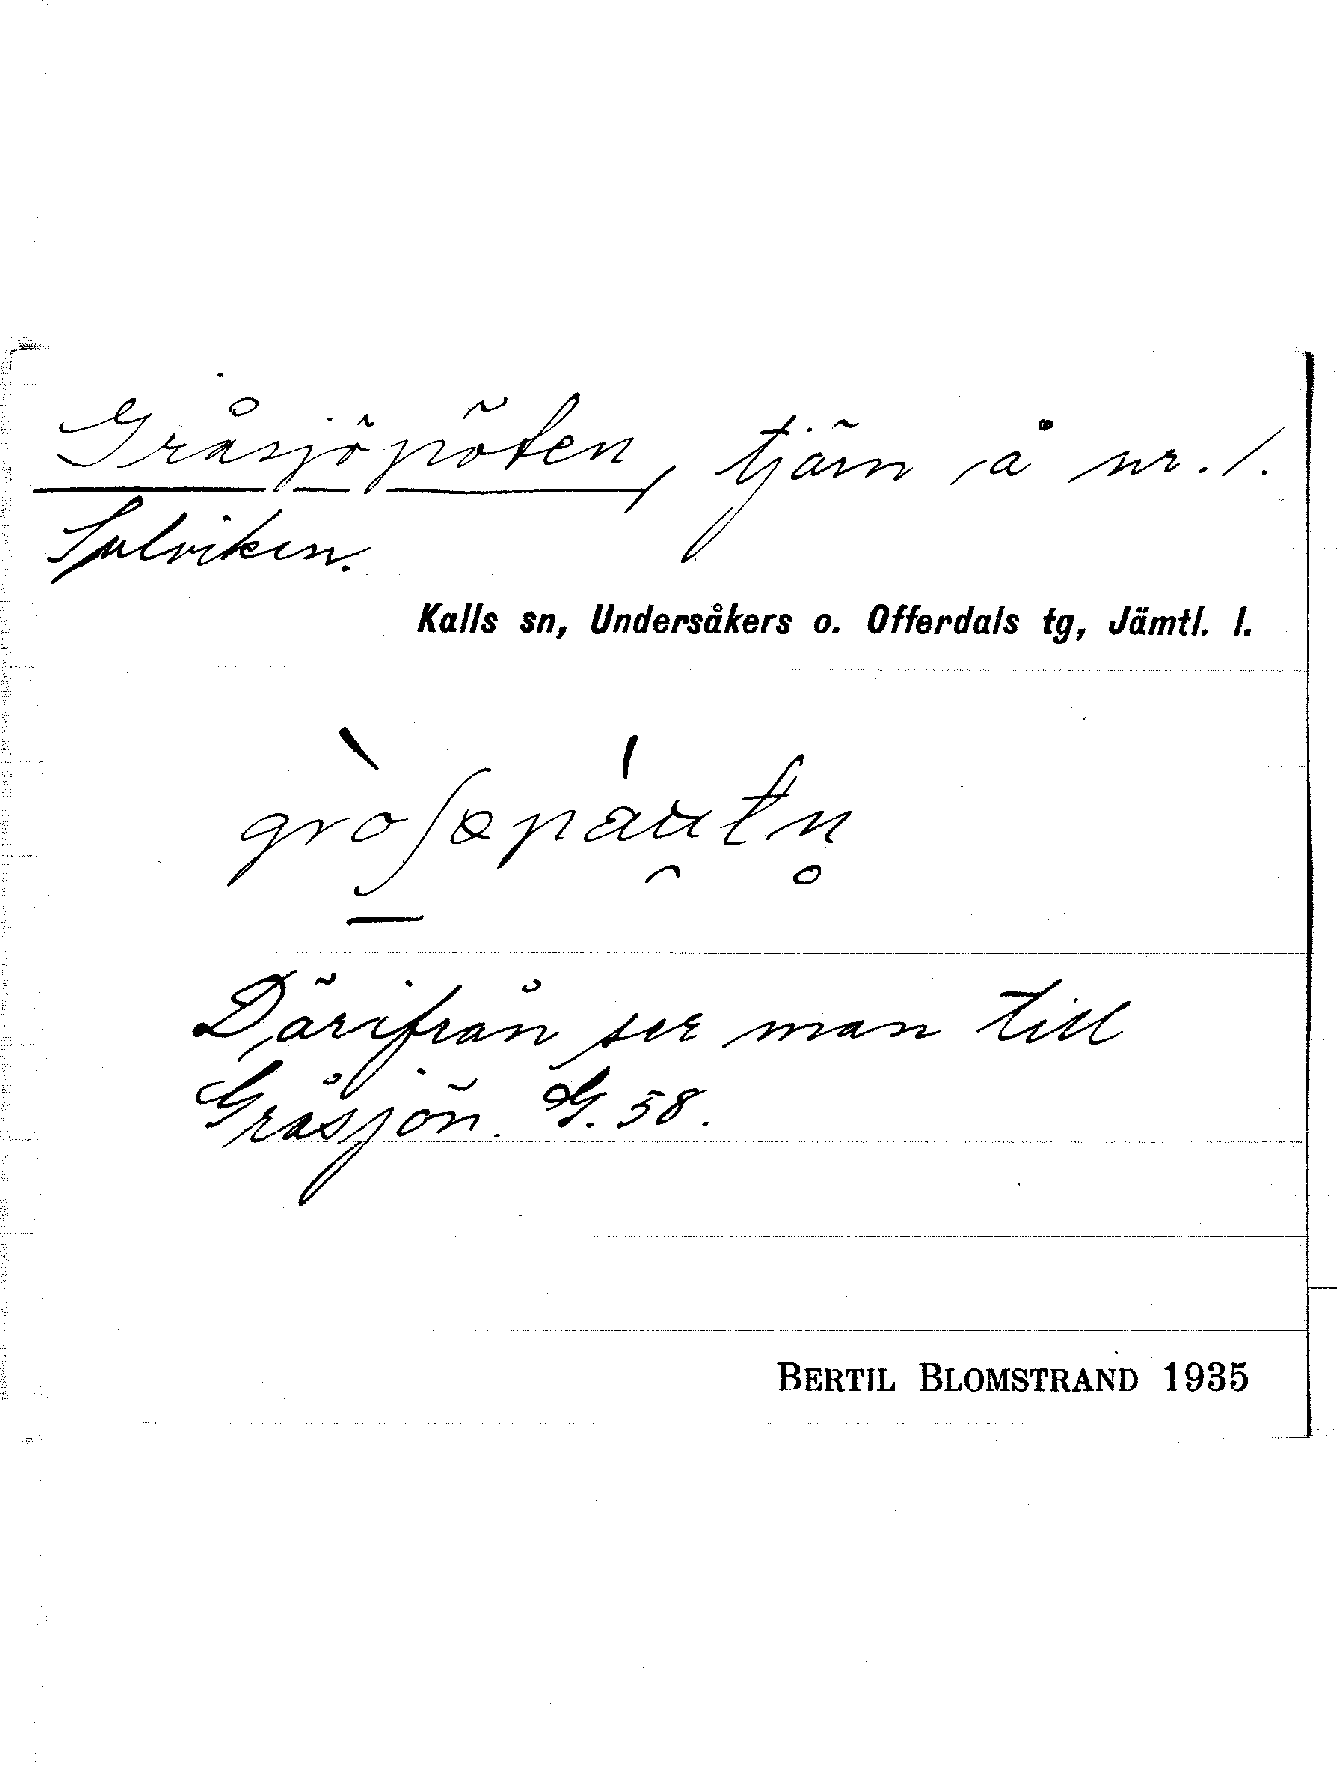 Gråsjöpöten, tjärn å nr. 1.
Sulviken.
Kalls sn, Undersåkers o. Offerdals tg, Jämtl. l.
Därifrån ser man till
Gråsjön. G. 58.
BERTIL BLOMSTRAND 1935